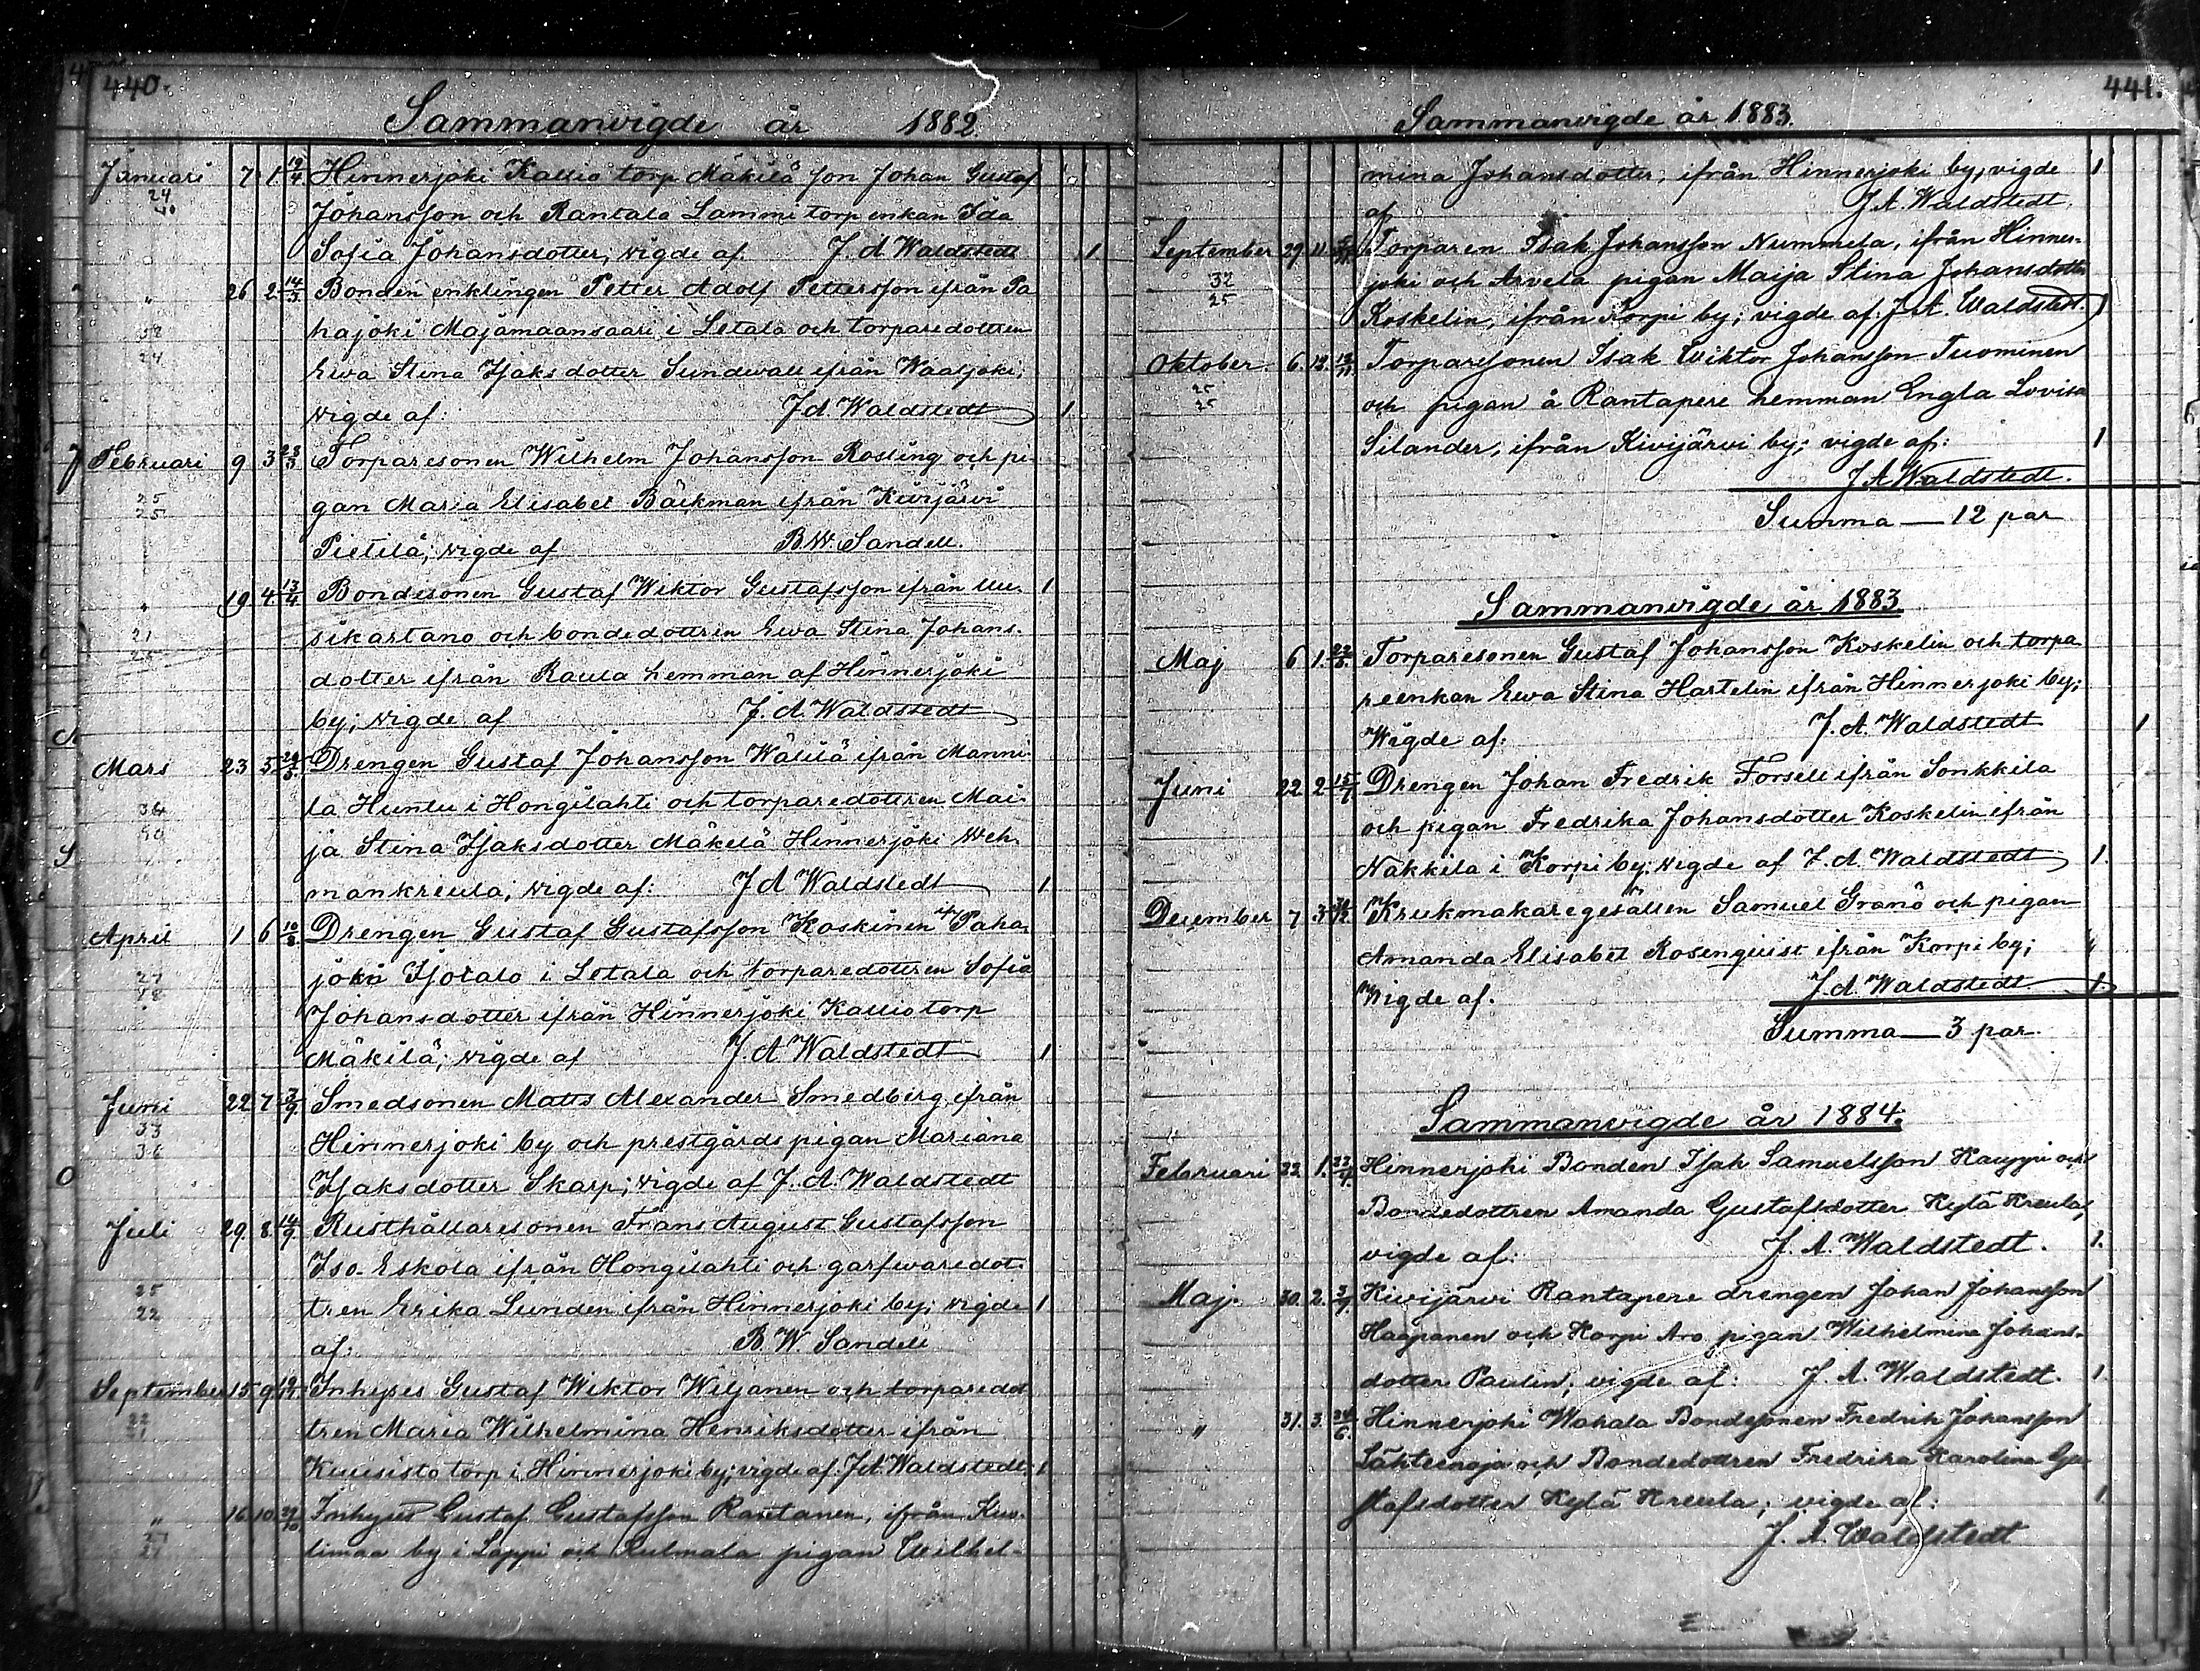 440.
Sammanvigde år 1882
Januari 7 1 19/4 Hinnerjoki Kallio torp Mäkilä son Johan Gustaf
24
40
Johansson och Rantala Lammi torp enkan Ida
Sofia Johansdotter; vigde af: J. A Waldstedt 1
" 26 2 14/5 Bonden enklingen Petter Adolf Pettersson ifrån Pa
hajoki Majamaansaari i Letala och torparedottren
24
Ewa Stina Isaks dotter Sundwall ifrån Waaljoki;
vigde af: J A Waldstedt 1
Februari 9 3 Torparesonen Wilhelm Johansson Rosling och pi-
25
25
gan Maria Elisabet Bäckman ifrån Kivijärvi
Pietilä; vigde af B.W. Sandell.
" 19 4 13/4 Bondesonen Gustaf Wiktor Gustafsson ifrån Uu- 1
21
sikartano och bondedottren Ewa Stina Johans-
dotter ifrån Raula hemman af Hinnerjoki
by; vigde af J. A. Waldstedt
Mars 23 5 Drengen Gustaf Johansson Wälilä ifrån Manni-
la Huntu i Hongilahti och torparedottren Mai-
ja Stina Isaksdotter Mäkelä Hinnerjoki Weh-
mankreula; vigde af: J A Waldstedt 1
April 1 6 10/8 Drengen Gustaf Gustafsson Koskinen Paha-
joki Isotalo i Letala och torparedottren Sofia
27
Johansdotter ifrån Hinnerjoki Kallio torp
Mäkilä; vigde af J A Waldstedt 1
Juni 22 7 3/9 Smedsonen Matts Alexander Smedberg, ifrån
33
36
Hinnerjoki by och prestgårds pigan Mariana
Isaksdotter Skarp; vigde af J. A. Waldstedt
Juli 29 8 14/9 Rusthållaresonen Frans August Gustafsson
Iso-Eskola ifrån Hongilahti och garfvaredot-
25
22
tren Erika Lunden ifrån Hinnerjoki by; vigde 1
af: B. W. Sandell
September 15 9 Inhyses Gustaf Wiktor Wiljanen och torparedot
22
21
tren Maria Wilhelmina Henriksdotter ifrån
Kuusisto torp i Hinnerjoki by; vigde af J A Waldstedt. 1
" 16 10 Inhyses Gustaf Gustafsson Rantanen, ifrån Kuo-
27
limaa by i Lappi och Kulmala pigan Wilhel-
441.
Sammanvigde år 1883.
mina Johansdotter, ifrån Hinnerjoki by, vigde 1
af J A Waldstedt.
September 29. 11. Torparen Isak Johansson Nummela, ifrån Hinner-
32
25
joki och Arvela pigan Maija Stina Johansdotter
Koskelin, ifrån Korpi by; vigde af: J. A. Waldstedt. 1
Oktober. 6. 12. Torparesonen Isak Wiktor Johansson Tuominen
25
25
och pigan å Rantapere hemman Engla Lovisa
Silander, ifrån Kivijärvi by; vigde af: 1
J A Waldstedt.
Summa — 12 par
Sammanvigde år 1883
Maj 6 1. Torparesonen Gustaf Johansson Koskelin och torpa
reenkan Ewa Stina Hartelin ifrån Hinnerjoki by;
Wigde af: J. A. Waldstedt 1
Juni 22. 2 15/7 Drengen Johan Fredrik Forsell ifrån Sonkkila
och pigan Fredrika Johansdotter Koskelin ifrån
Nakkila i Korpi by; vigde af J. A. Waldstedt 1.
December 7 3 Krukmakaregesällen Samuel Granö och pigan
Amanda Elisabet Rosenquist ifrån Korpi by;
Wigde af. J. A. Waldstedt 1
Summa — 3 par.
Sammanvigde år 1884.
Februari 22. 1. Hinnerjoki Bonden Isak Samuelsson Kauppi och
Bondedottren Amanda Gustafsdotter Kylä Kreula,
vigde af: J. A. Waldstedt. 1.
Maj. 30. 2. Kivijärvi Rantapere drengen Johan Johansson
Haapanen och Korpi Aro pigan Wilhelmina Johans-
dotter Paulin, vigde af: J. A. Waldstedt. 1.
" 31. 3. Hinnerjoki Wahala Bondesonen Fredrik Johansson
Lähteenoja och Bondedottren Fredrika Karolina Gu
stafsdotter Kylä Kreula; vigde af: 1
J. A. Waldstedt